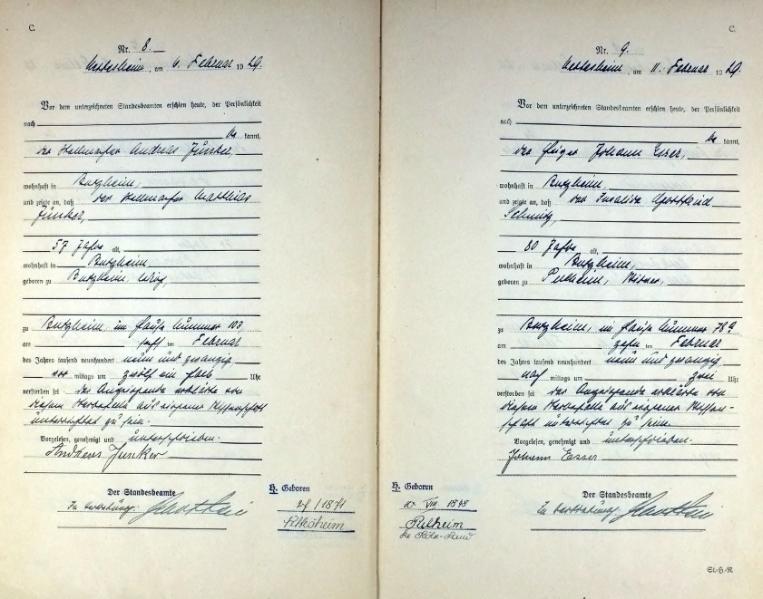 C.
Nr. 8.
Nettesheim, am 6. Februar 1929.
Vor dem unterzeichneten Standesbeamten erschien heute, der Persönlichkeit
nach
be kannt,
der Andreas Junker,
wohnhaft in Butzheim,
und zeigte an, daß der Matthias
Junker,
57 Jahre alt,
wohnhaft in Butzheim,
geboren zu Butzheim, ledig
zu Butzheim, im Hause Nummer 103,
am im Februar
des Jahres tausend neunhundert neun und zwanzig
vor mittags um zwölf ein halb Uhr
verstorben sei. Der Anzeigende erklärte von
diesem Sterbefalle aus eigener Wissenschaft
unterrichtet zu sein.
Vorgelesen, genehmigt und unterschrieben.
Andreas Junker
Der Standesbeamte
In Vertretung:
H. Geboren
1871
C.
Nr. 9.
Nettesheim, am 11. Februar 1929.
Vor dem unterzeichneten Standesbeamten erschien heute, der Persönlichkeit
nach
be kannt,
der Johann Esser,
wohnhaft in Butzheim,
und zeigte an, daß der Invalide
Schmitz,
80 Jahre alt,
wohnhaft in Butzheim,
geboren zu Pulheim, Witwer,
zu Butzheim, im Hause Nummer 78
am zehn ten Februar
des Jahres tausend neunhundert neun und zwanzig
nach mittags um zwei Uhr
verstorben sei. Der Anzeigende erklärte von
diesem Sterbefalle aus eigener Wissen-
schaft unterrichtet zu sein.
Vorgelesen, genehmigt und unterschrieben.
Johann Esser
Der Standesbeamte
In Vertretung:
H. Geboren
VIII
Pulheim
St.-H.-R